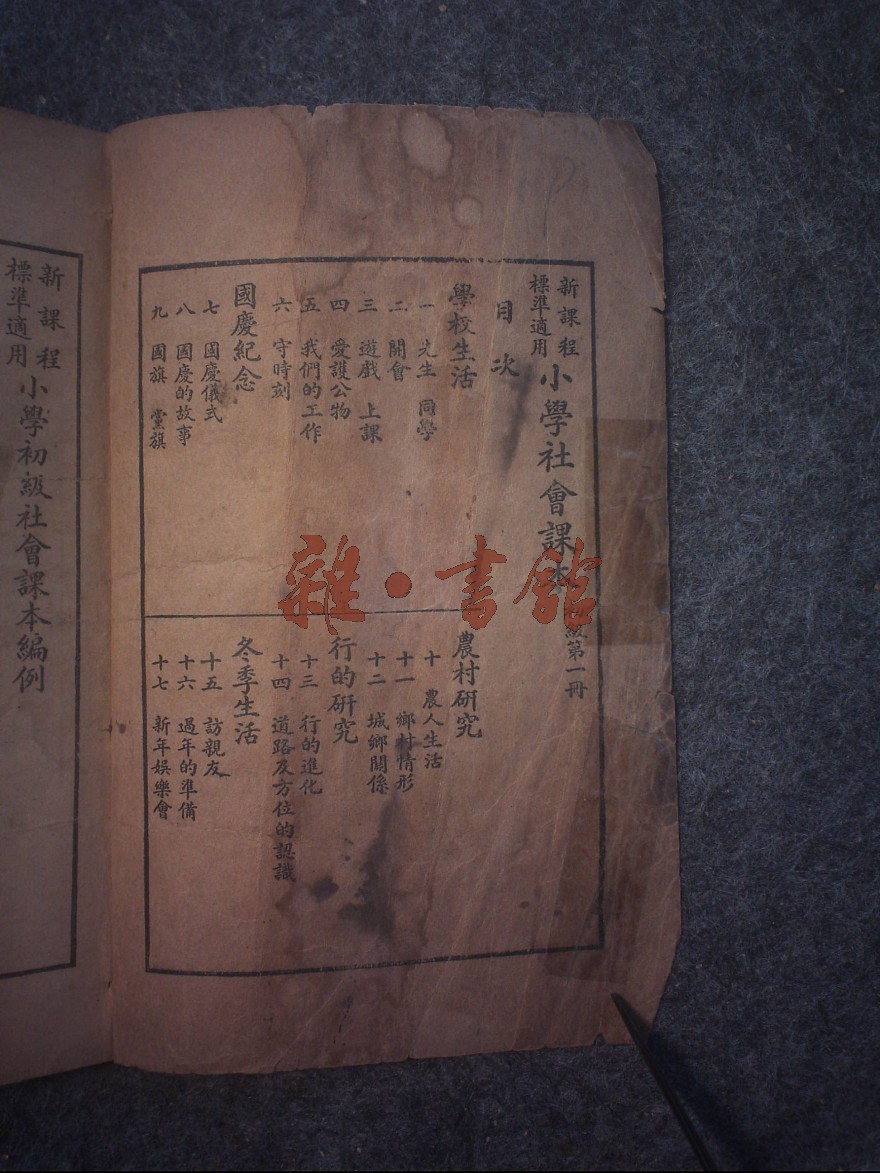 新課程
標準適用
小學社會課本
級第一冊
目次
學校生活
一 先生 同學
二 開會
三 遊戲 上課
四 愛護公物
五 我們的工作
六 守時刻
國慶紀念
七 國慶儀式
八 國慶的故事
九 國旗 黨旗
農村研究
十 農人生活
十一 鄉村情形
十二 城鄉關係
行的研究
十三 行的進化
十四 道路及方位的認識
冬季生活
十五 訪親友
十六 過年的準備
十七 新年娛樂會
新課程
標準適用
小學初級社會課本編例
雜·書館